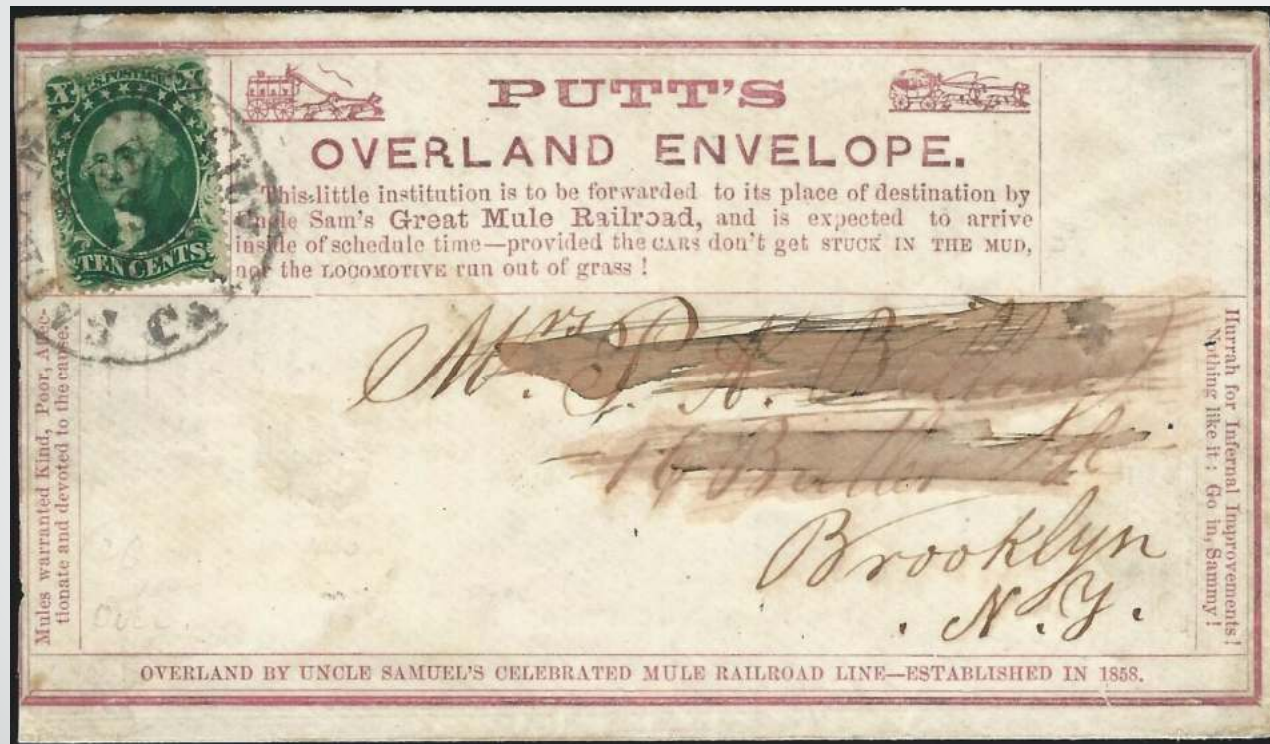 X U.S. POSTAGE X
TEN CENTS
PUTT'S
OVERLAND ENVELOPE.
This little institution is to be forwarded to its place of destination by
Uncle Sam's Great Mule Railroad, and is expected to arrive
inside of schedule time—provided the CARS don't get STUCK IN THE MUD,
nor the LOCOMOTIVE run out of grass !
Mules warranted Kind, Poor, Affec-
tionate and devoted to the cause.
Mrs. P. A.
16 Butler St
Brooklyn
N.Y.
Hurrah for Infernal Improvements !
Nothing like it : Go in, Sammy !
Over
OVERLAND BY UNCLE SAMUEL'S CELEBRATED MULE RAILROAD LINE—ESTABLISHED IN 1858.